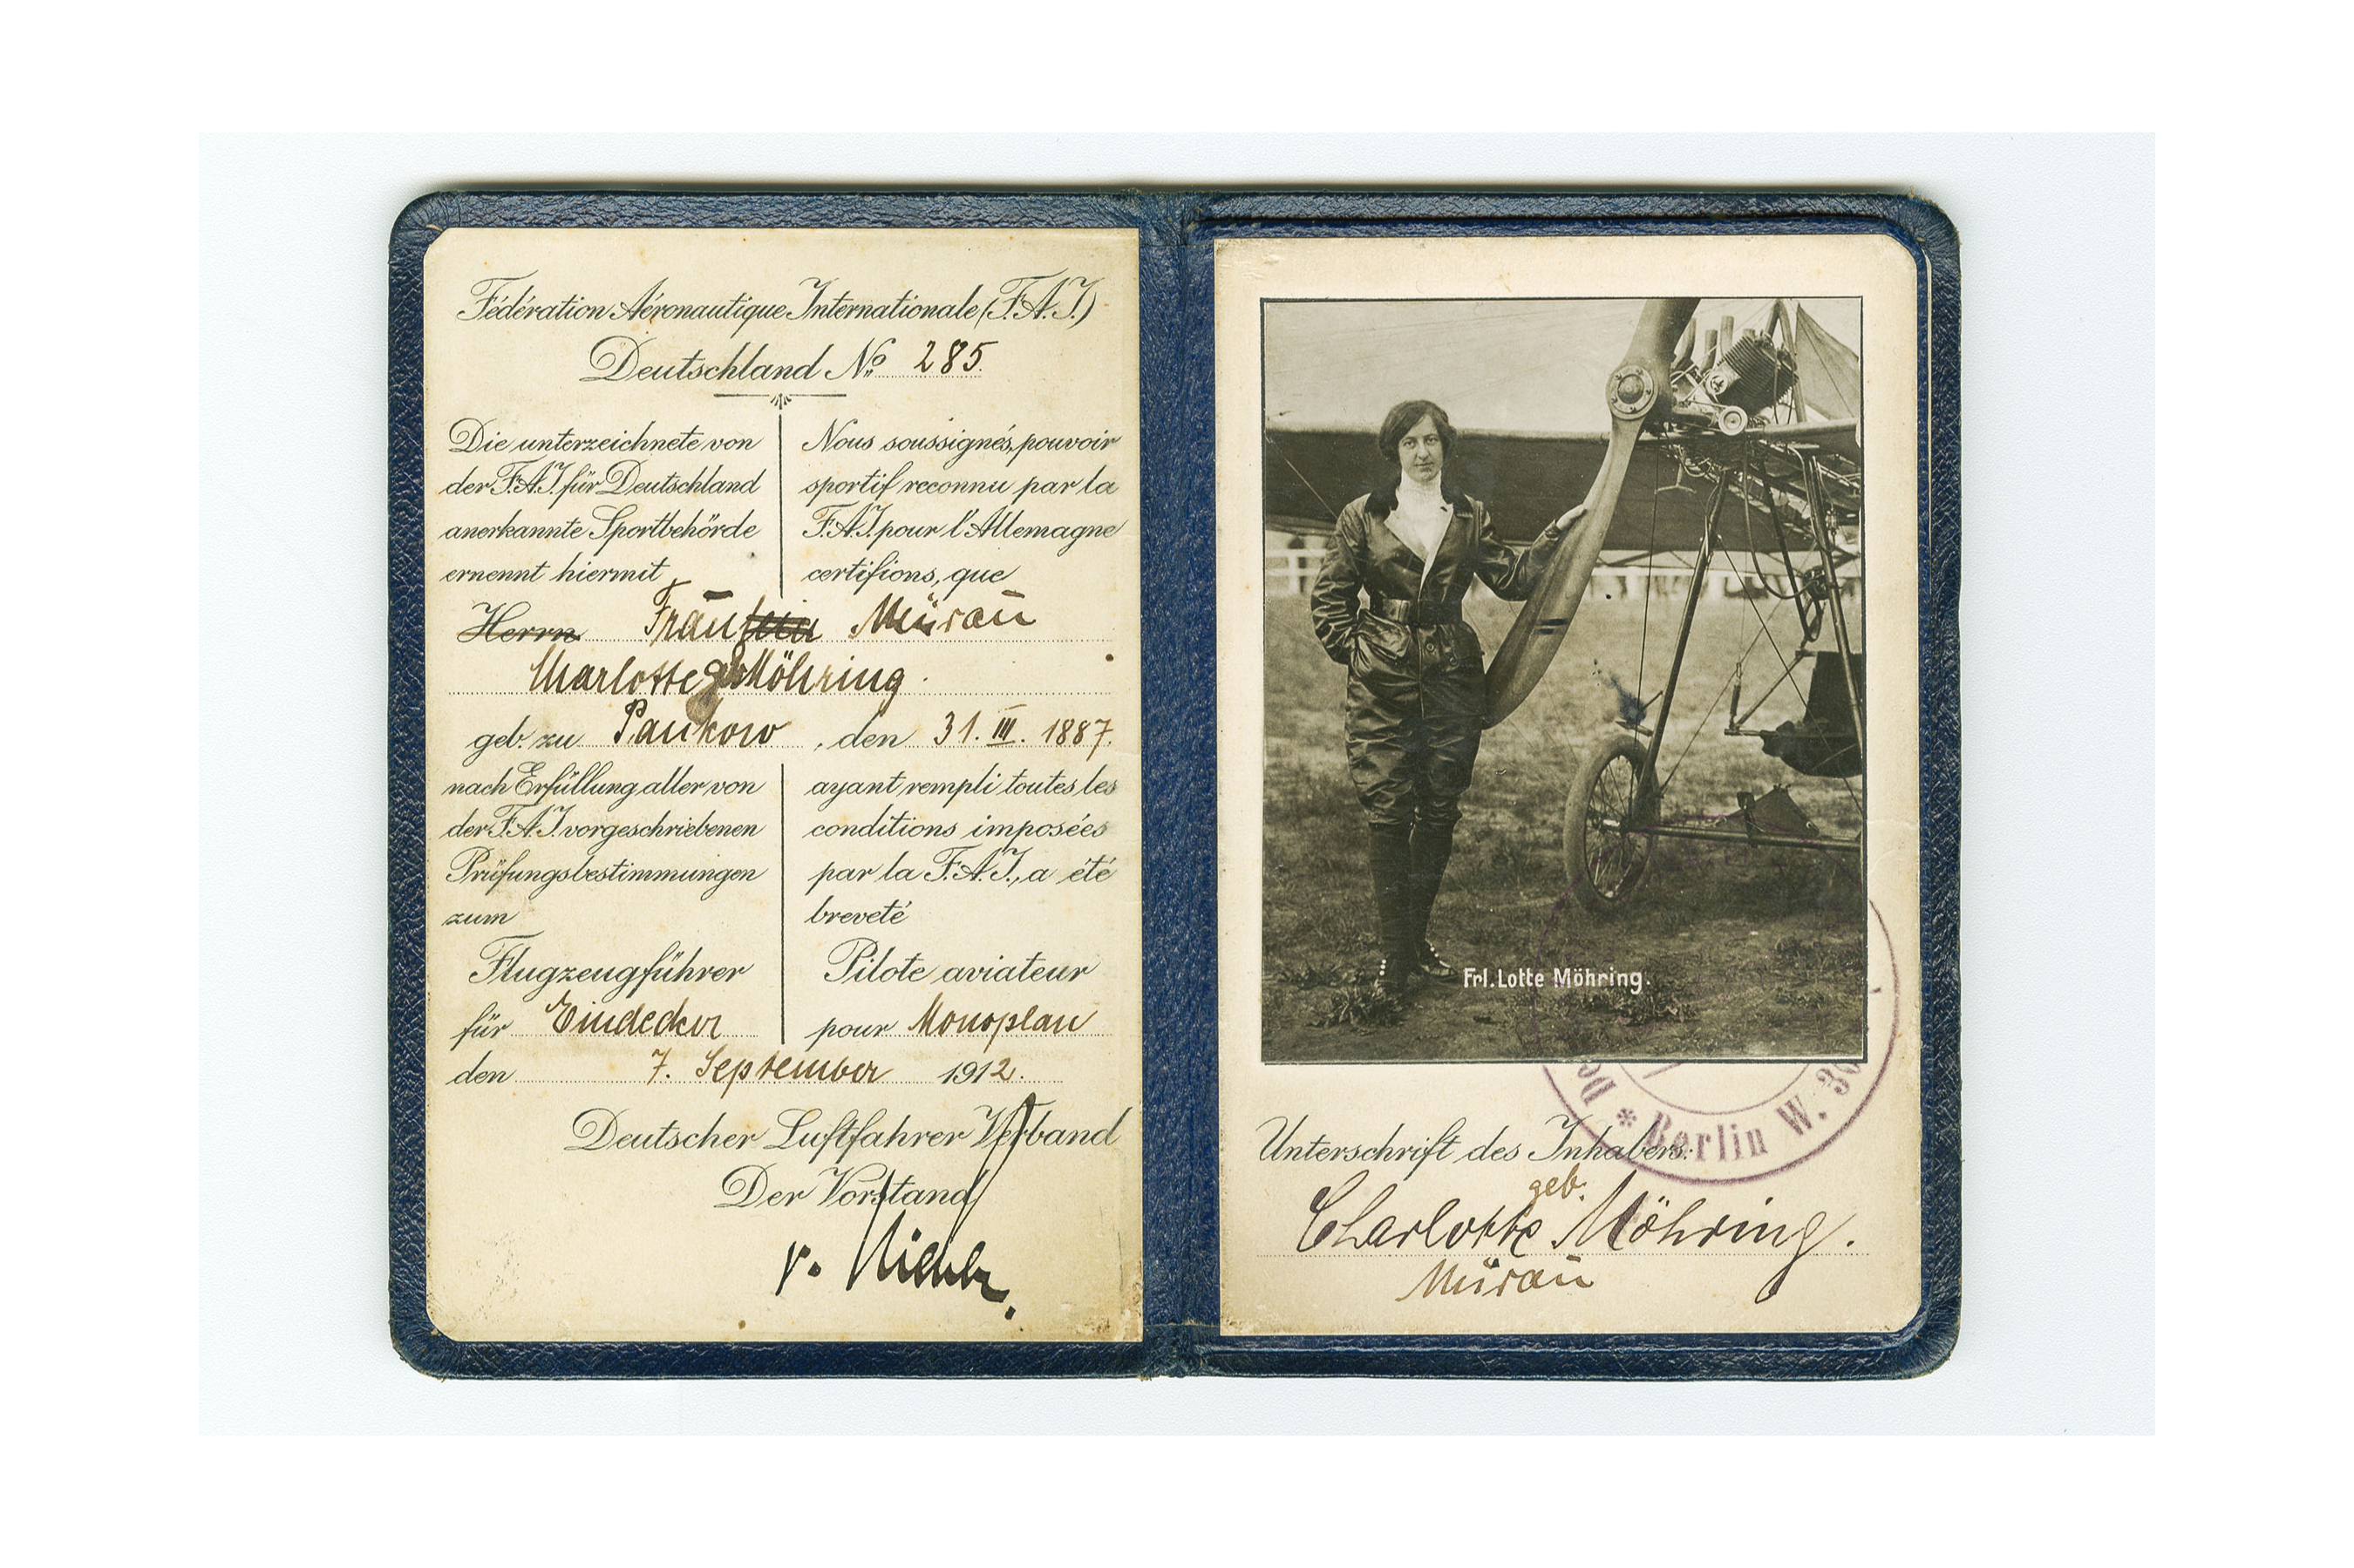 Fédération Aéronautique Internationale (F.A.I.)
Deutschland No. 285.
Die unterzeichnete von
der F.A.I. für Deutschland
anerkannte Sportbehörde
ernennt hiermit
Nous soussignés, pouvoir
sportif reconnu par la
F.A.I. pour l'Allemagne
certifions, que
Herrn Fräulein Mürau
Charlotte geb. Möhring
geb. zu Pankow, den 31. III. 1887.
nach Erfüllung aller von
der F.A.I. vorgeschriebenen
Prüfungsbestimmungen
zum
Flugzeugführer
für Eindecker
ayant rempli toutes les
conditions imposées
par la F.A.I., a été
breveté
Pilote aviateur
pour Monoplan
den 7. September 1912.
Deutscher Luftfahrer Verband
Der Vorstand
v.
Frl. Lotte Möhring.
* Berlin W. 30
Unterschrift des Inhabers:
geb.
Charlotte Möhring.
Mürau